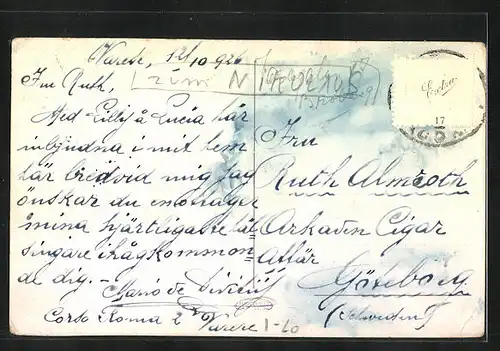 Varese, 12/10 926
Fru Ruth,
Med Lilly å Lucia här
inbjudna i mit hem
här bredvid mig jag
önskar du emottager
mina hjärtligaste häl
singare ihågkommon
de dig. —
Mario de
Corso Roma 2 Varese
Fru
Ruth Almroth
Arkaden Cigar
Affär
Göteborg
(Schweden)
17